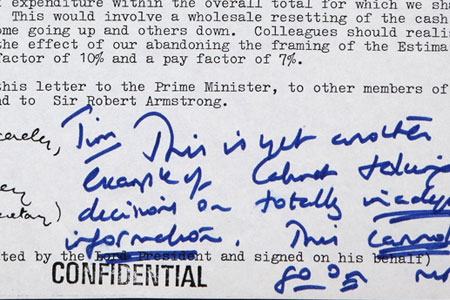 expenditure within the overall total for which we sha
This would involve a wholesale resetting of the cash
ome going up and others down. Colleagues should realis
the effect of our abandoning the framing of the Estima
factor of 10% and a pay factor of 7%.
this letter to the Prime Minister, to other members of
nd to Sir Robert Armstrong.
Tim This is yet another
example of Cabinet taking
decisions on totally inadeq
information. This cannot
ated by the Lord President and signed on his behalf)
CONFIDENTIAL
go on